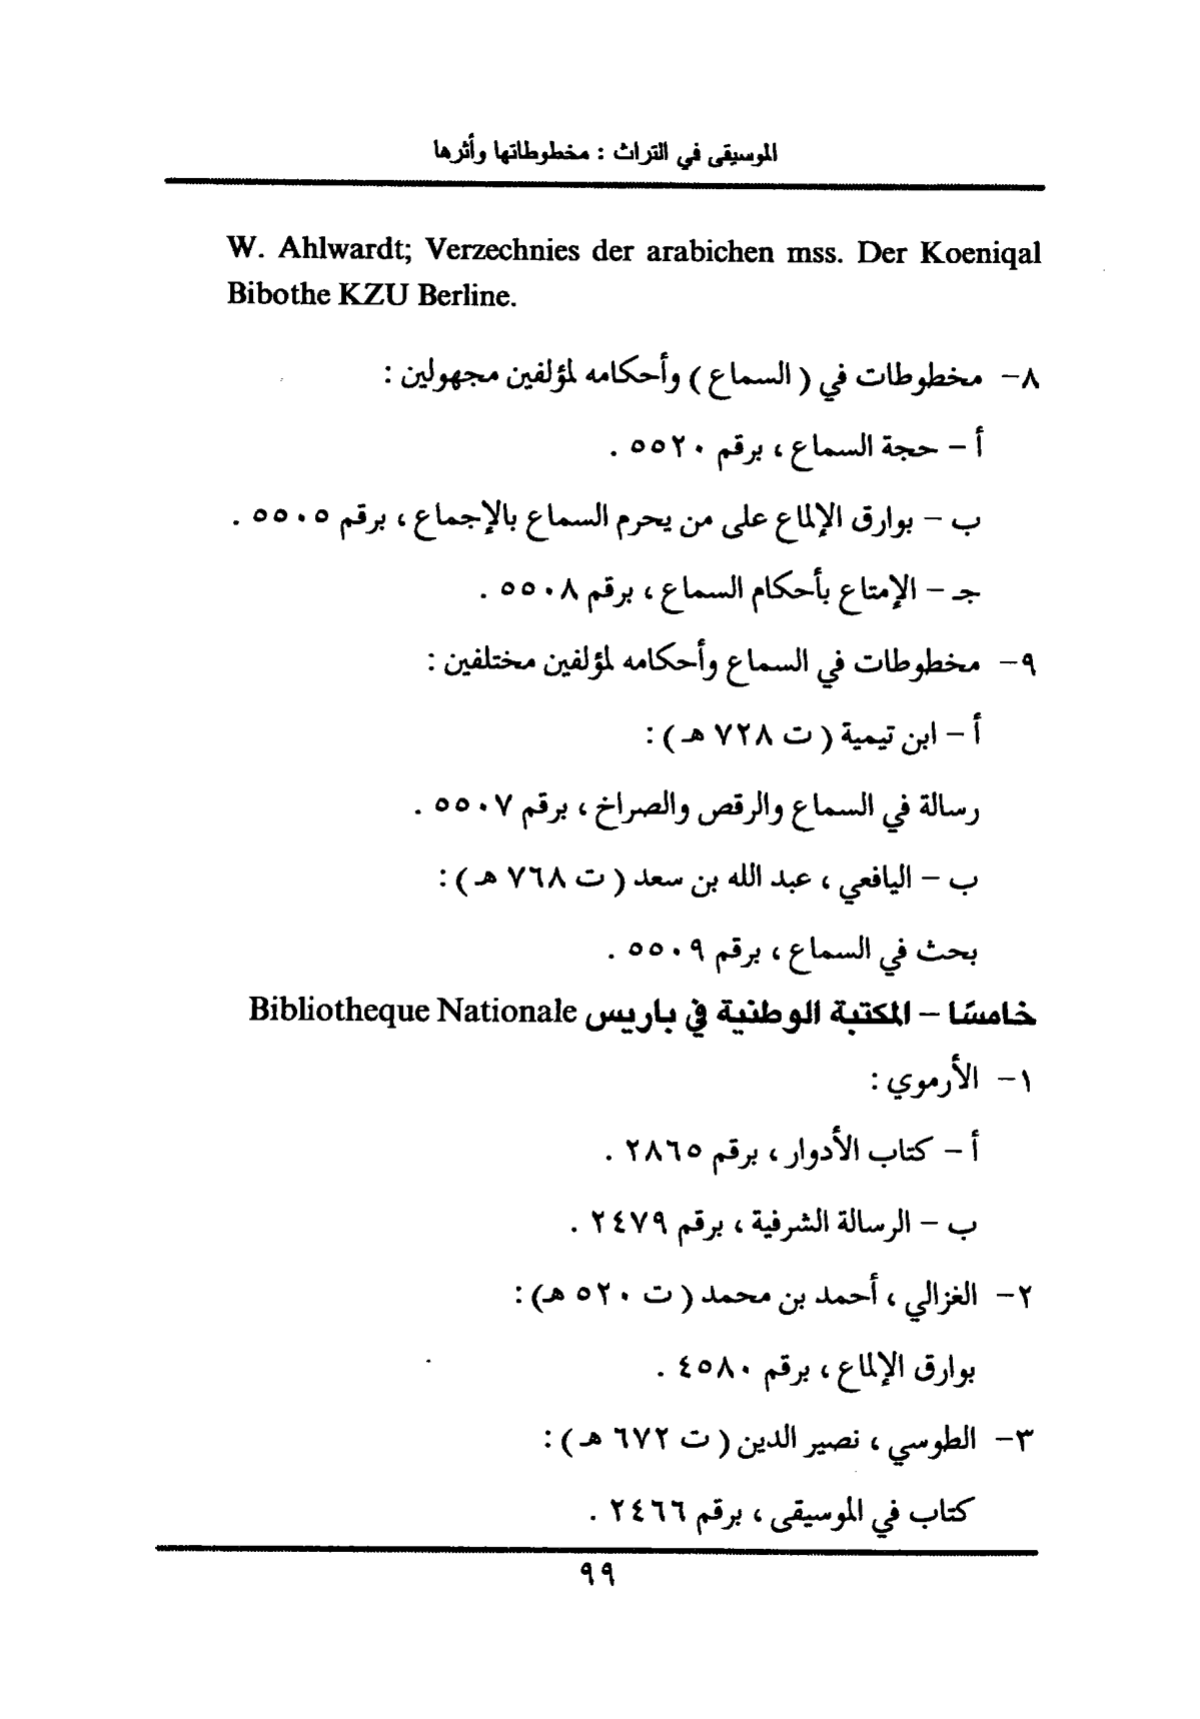 الموسيقى في التراث : مخطوطاتها وأثرها
W. Ahlwardt; Verzechnies der arabichen mss. Der Koeniqal
Bibothe KZU Berline.
٨- مخطوطات في ( السماع ) وأحكامه لمؤلفين مجهولين :
أ - حجة السماع ، برقم ٥٥٢٠ .
ب - بوارق الإلماع على من يحرم السماع بالإجماع ، برقم ٥٥٠٥ .
جـ - الإمتاع بأحكام السماع ، برقم ٥٥٠٨ .
٩- مخطوطات في السماع وأحكامه لمؤلفين مختلفين :
أ - ابن تيمية ( ت ٧٢٨ هـ ) :
رسالة في السماع والرقص والصراخ ، برقم ٥٥٠٧ .
ب - اليافعي ، عبد الله بن سعد ( ت ٧٦٨ هـ ) :
بحث في السماع ، برقم ٥٥٠٩ .
خامسًا - المكتبة الوطنية في باريس Bibliotheque Nationale
١- الأرموي :
أ - كتاب الأدوار ، برقم ٢٨٦٥ .
ب - الرسالة الشرفية ، برقم ٢٤٧٩ .
٢- الغزالي ، أحمد بن محمد ( ت ٥٢٠ هـ) :
بوارق الإلماع ، برقم ٤٥٨٠ .
٣- الطوسي ، نصير الدين ( ت ٦٧٢ هـ ) :
كتاب في الموسيقى ، برقم ٢٤٦٦ .
٩٩